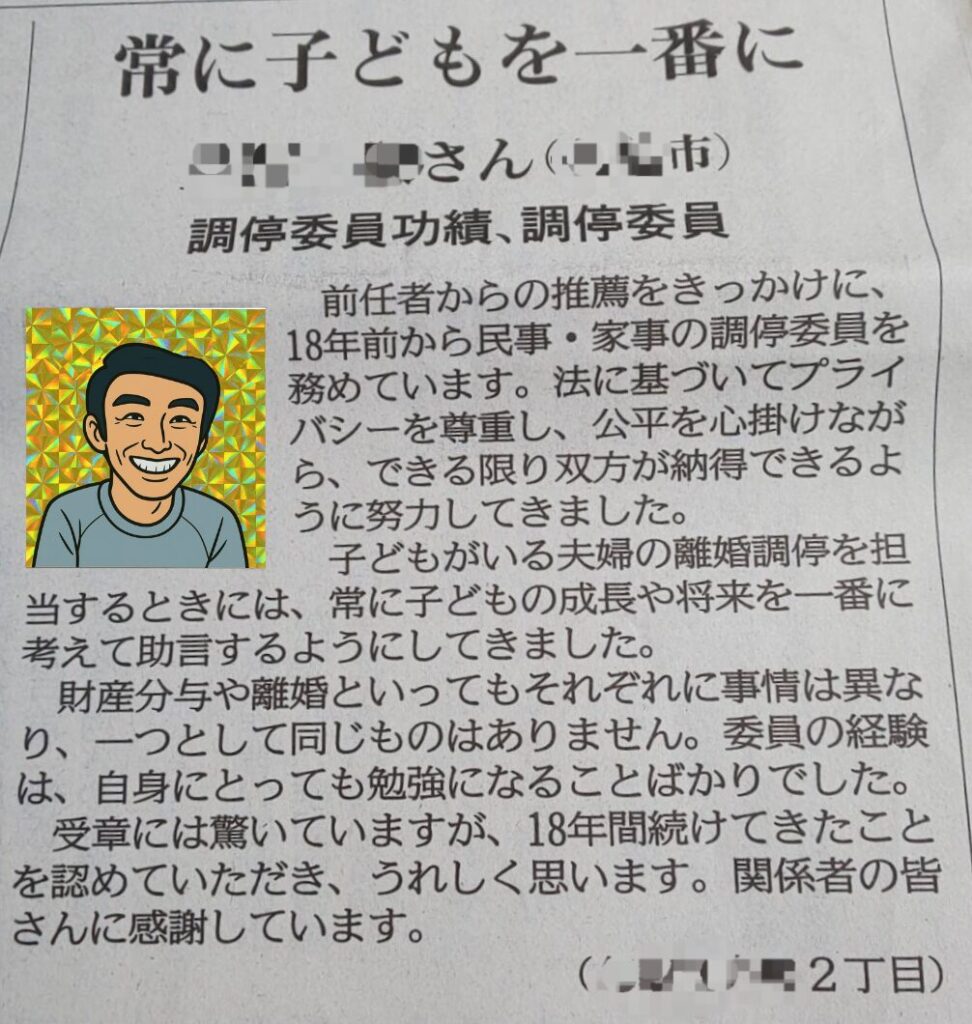 常に子どもを一番に
さん(市)
調停委員功績、調停委員
前任者からの推薦をきっかけに、
18年前から民事・家事の調停委員を
務めています。法に基づいてプライ
バシーを尊重し、公平を心掛けなが
ら、できる限り双方が納得できるよ
うに努力してきました。
子どもがいる夫婦の離婚調停を担
当するときには、常に子どもの成長や将来を一番に
考えて助言するようにしてきました。
財産分与や離婚といってもそれぞれに事情は異な
り、一つとして同じものはありません。委員の経験
は、自身にとっても勉強になることばかりでした。
受章には驚いていますが、18年間続けてきたこと
を認めていただき、うれしく思います。関係者の皆
さんに感謝しています。
(2丁目)